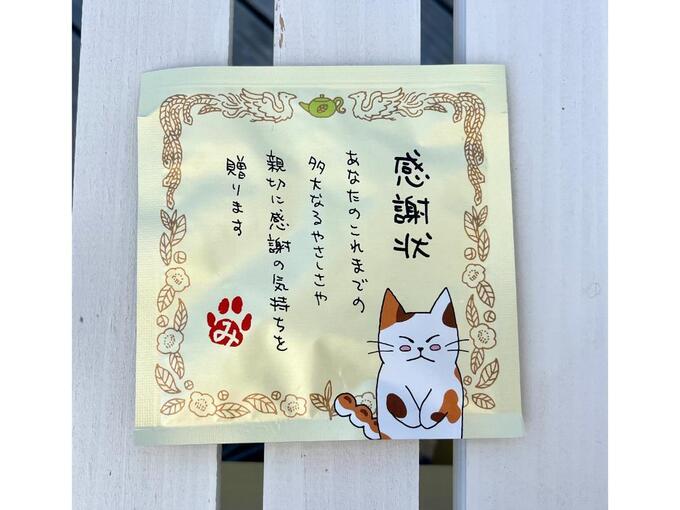 感謝状
あなたのこれまでの
多大なるやさしさや
親切に感謝の気持ちを
贈ります
み